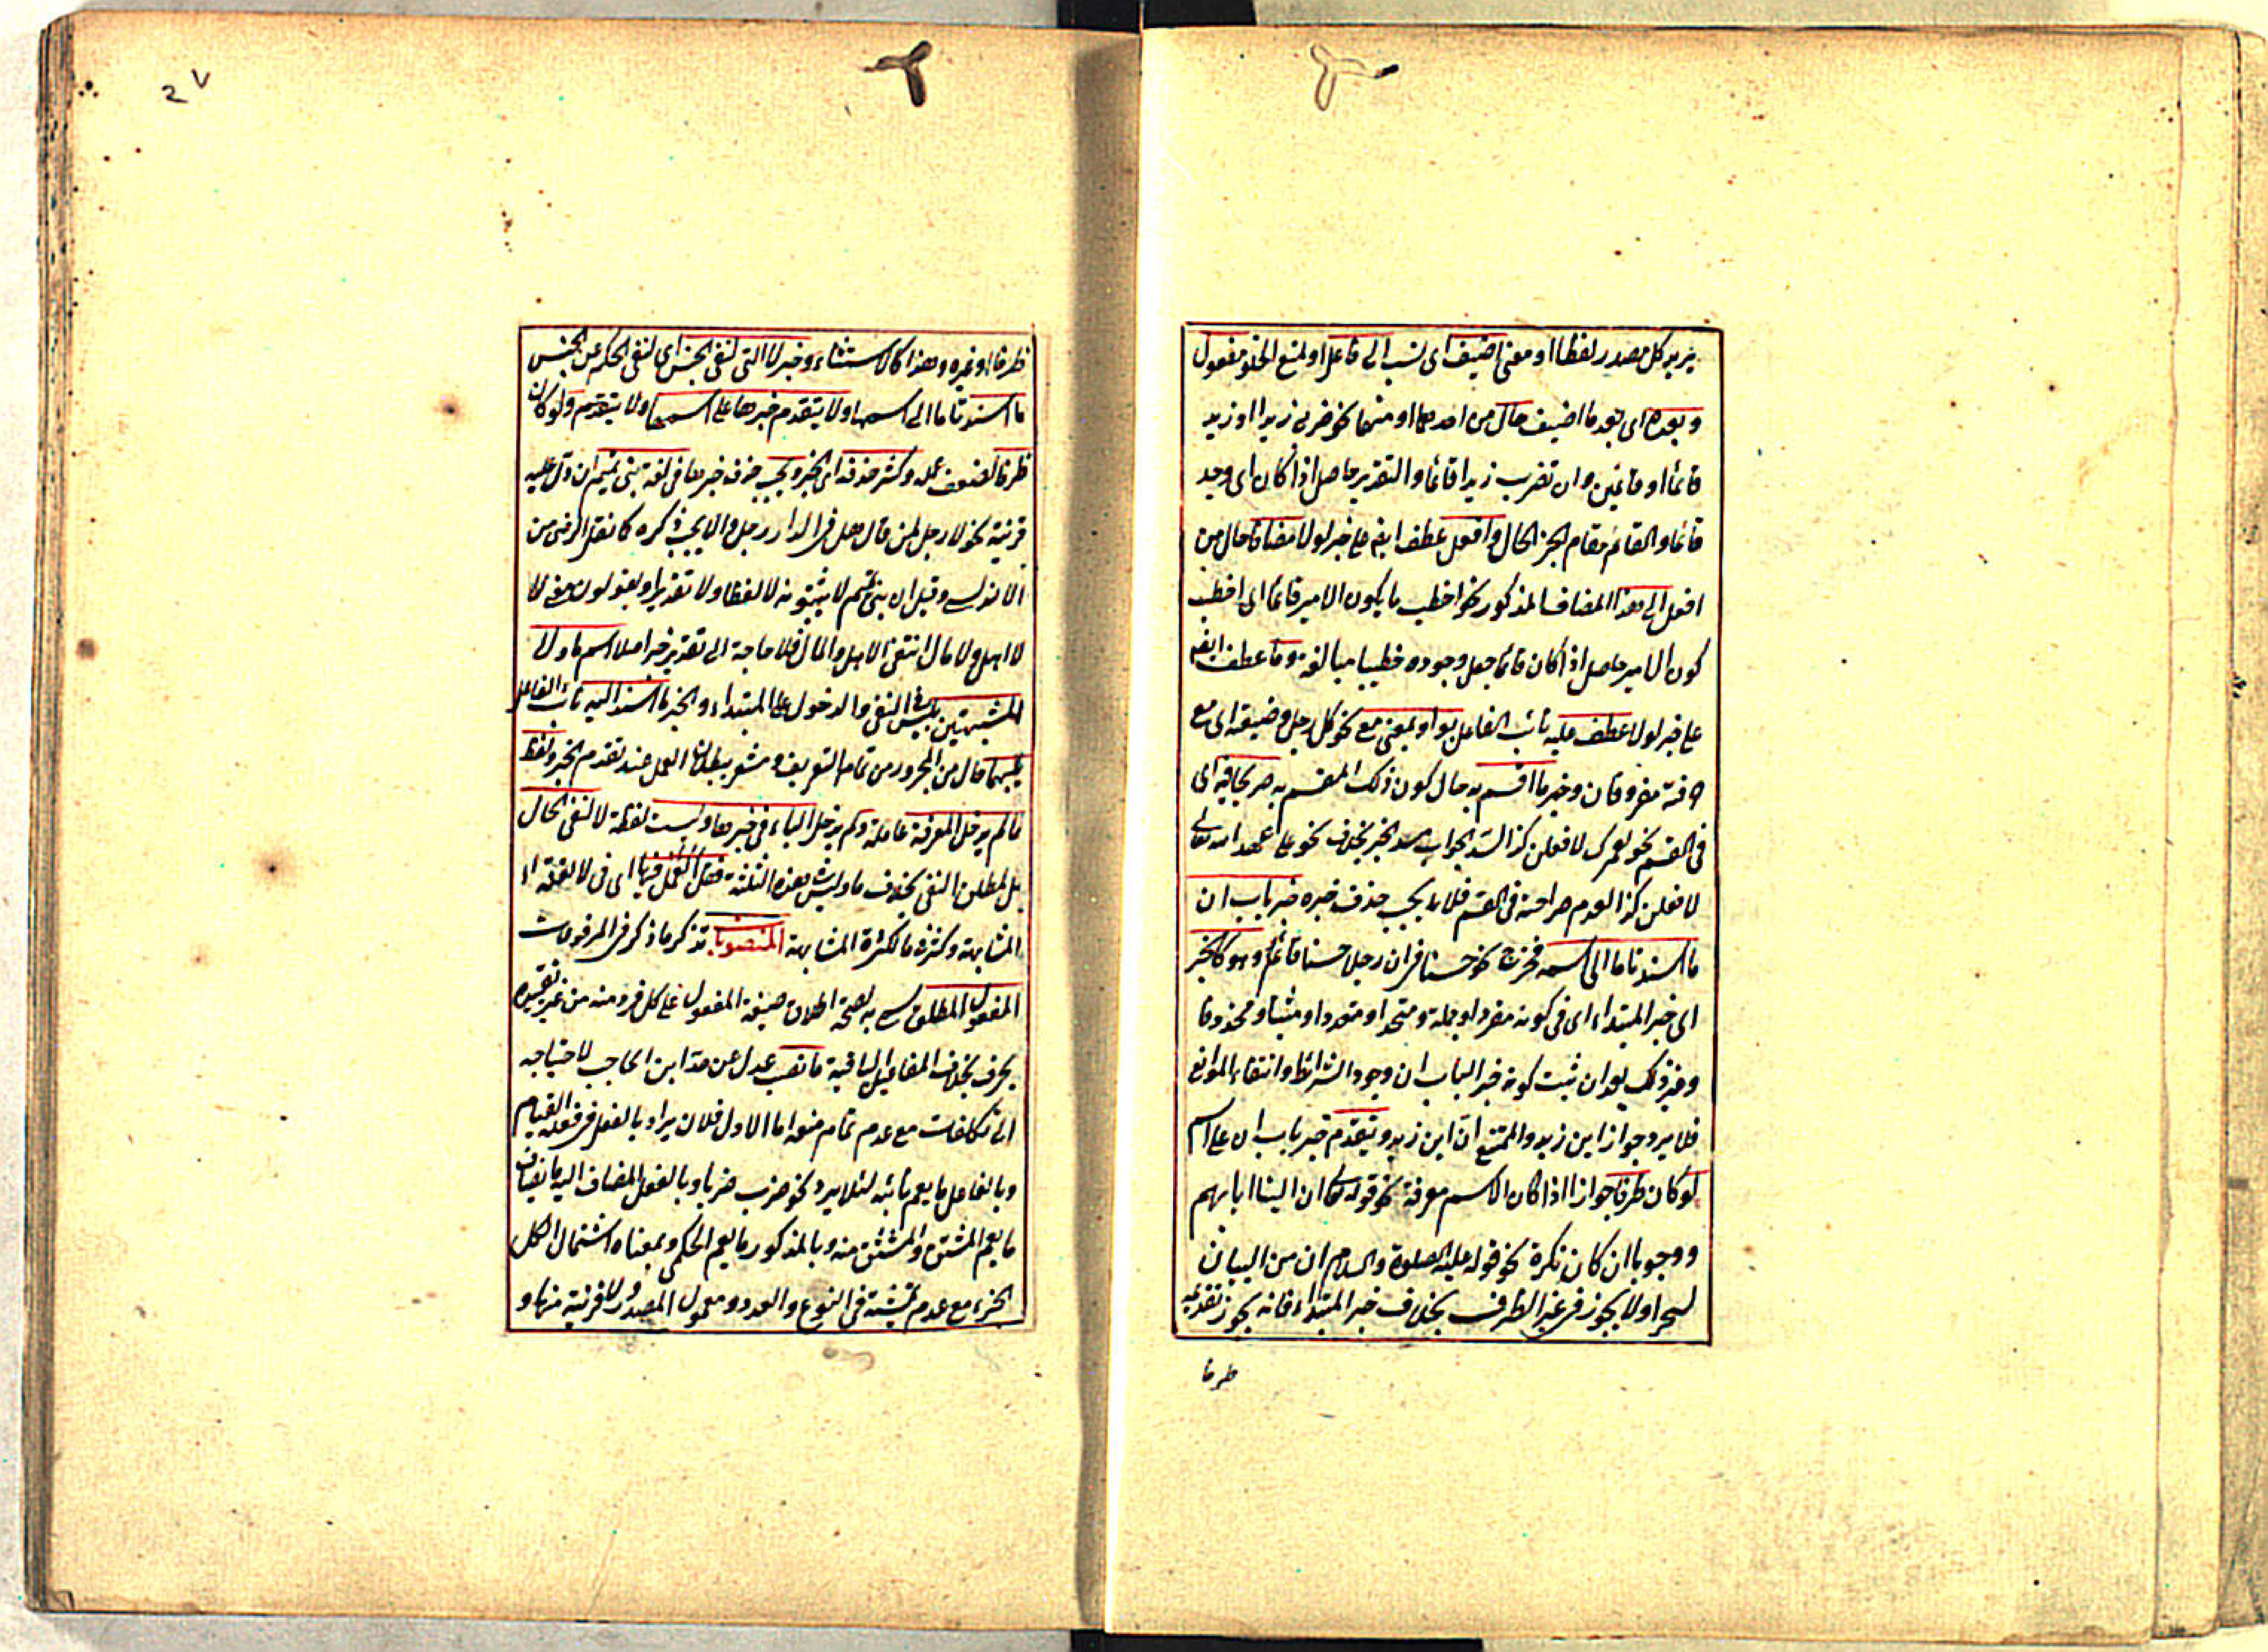 يريد كل مصدر لفظا او معنى اضيف اى نسب الى فاعل او لمنع الخلو مفعول
وبعده اى بعد ما اضيف حال من احدهما او منهما نحو ضربى زيدا او زيد
قائما او قائمين وان تضرب زيدا قائما والتقدير حاصل اذا كان اى وجد
قائما والقائم مقام الخبر الحال وافعل عطف ايضم على خبر لولا مضافا حال من
افعل الى هذا المضاف المذكور نحو اخطب ما يكون الامير قائما اى اخطب
كون الامير حاصل اذا كان قائما جعل وجوده خطيبا مبالغة وما عطف ايضم
على خبر لولا عطف عليه نائب الفاعل بواو بمعنى مع نحو كل رجل وضيعته اى مع
مقرونان وخبر ما اقسم به حال كون ذلك المقسم به صريحا فيه اى
فى القسم نحو لعمرك لافعلن كذا لسد الجواب مسد الخبر بخلاف نحو على عهد الله تعالى
لافعلن كذا لعدم صراحته فى القسم فلا يجب حذف خبره خبر باب ان
ما اسند تاما الى اسمه فخرج نحو حسنا فى ان رجلا حسنا قائم وهو كالخبر
اى خبر المبتداء اى فى كونه مفردا او جملة ومتحدا او متعددا او مثبتا ومحذوفا
وغير ذلك بعد ان ثبت كونه خبر الباب ان وجود الشرائط وانتفاء الموانع
فلا يرد جواز اين زيد والممتنع ان اين زيد ويتقدم خبر باب ان على اسم
لو كان ظرفا جوازا اذا كان الاسم معرفة نحو قوله تعالى ان الينا ايابهم
ووجوبا ان كان نكرة نحو قوله عليه الصلوة والسلام ان من البيان
لسحرا ولا يجوز فى غير الظرف بخلاف خبر المبتداء فانه يجوز تقديمه
ظرفا
٢٧
ظرفا او غيره وهذا كالاستثناء وخبر لا التى لنفى الجنس اى لنفى الحكم عن الجنس
ما اسند تاما الى اسمها ولا يتقدم خبرها على اسمها ولا يتقدم ولو كان
ظرفا لضعف عمله وكثر حذفه اى الخبر ويجب حذف خبرها فى لغة بنى تميم ان دل عليه
قرينة نحو لا رجل لمن قال هل فى الدار رجل والا يجب ذكره كما نقل الرضى من
الاندلسى وقيل ان بنى تميم لا يثبتونه لا لفظا ولا تقديرا ويقولون معنى لا
لا اهل ولا مال انتفى الاهل والمال فلا حاجة الى تقدير خبر اصلا اسم ما ولا
المشبهتين بليس فى النفى والدخول على المبتداء والخبر ما اسند اليه نائب الفاعل
حال من المجرور من تمام التعريف ومشعر ببطلان العمل عند تقدم الخبر ولفظ
ما لم يدخل المعرفة عاملة ولم يدخل الباء فى خبرها وليست لفظة لا لنفى الحال
بل لمطلق النفى بخلاف ما وليس بهذه الثلثة فقل العمل فيها اى فى لا لقلة
المشابهة وكثر فى ما لكثرة المشابهة المنصوبات تذكر ما ذكر فى المرفوعات
المفعول المطلق سمى به لصحة اطلاق صيغة المفعول على كل فرد منه من غير تقييده
بحرف بخلاف المفاعيل الباقية ما نصب عدل عن حد ابن الحاجب لاحتياجه
الى تكلفات مع عدم تمام منعه اما الاول فلان يراد بالفعل فى فعله القيام
وبالفاعل ما يعم نائبه لئلا يرد نحو ضرب ضربا وبالفعل المضاف اليه ايضا
ما يعم المشتق والمشتق منه وبالمذكور ما يعم الحكمى وبمعناه اشتمال الكل
الجزء مع عدم تمشيته فى النوع والعدد ومعمول المصدر ولا قرينة منها و